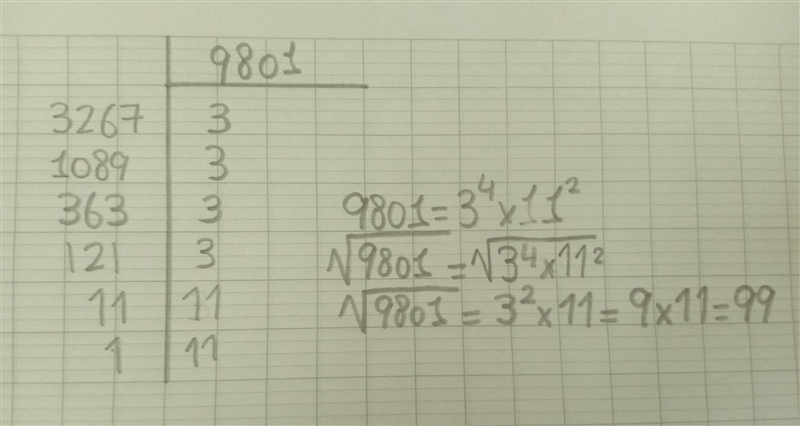 9801
3267 3
1089 3
363 3
121 3
11 11
1 11
9801 = 3⁴ × 11²
√9801 = √3⁴ × 11²
√9801 = 3² × 11 = 9 × 11 = 99